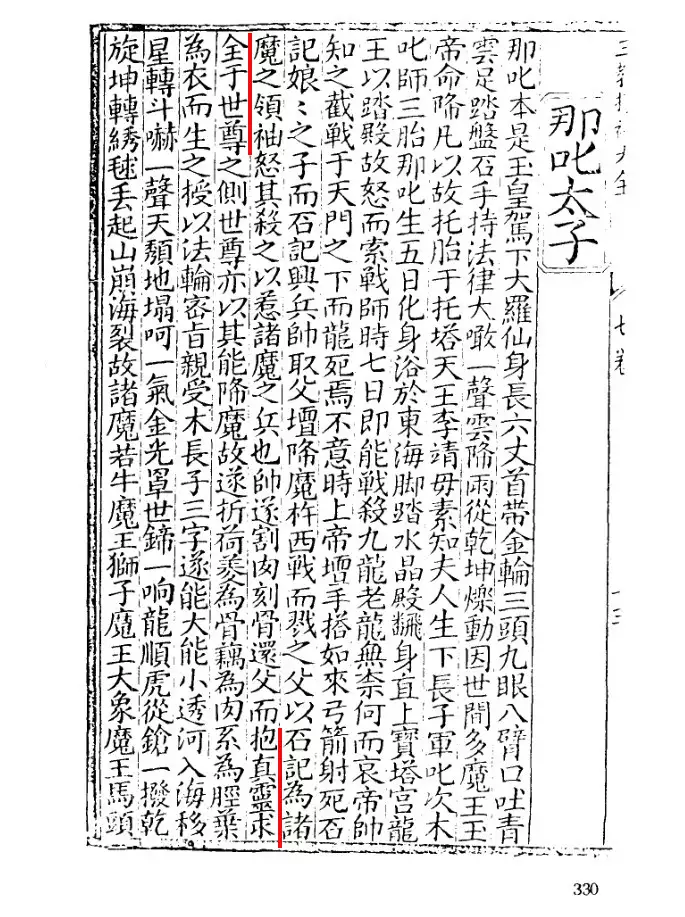 七卷
那叱太子
那叱本是玉皇駕下大羅仙身長六丈首帶金輪三頭九眼八臂口吐青
雲足踏盤石手持法律大噉一聲雲降雨從乾坤爍動因世間多魔王玉
帝命降凡以故托胎于托塔天王李靖母素知夫人生下長子軍叱次木
叱師三胎那叱生五日化身浴於東海脚踏水晶殿飜身直上寶塔宮龍
王以踏殿故怒而索戰師時七日即能戰殺九龍老龍無奈何而哀帝帥
知之截戰于天門之下而龍死焉不意時上帝壇手搭如來弓箭射死石
記娘〻之子而石記興兵帥取父壇降魔杵西戰而戮之父以石記為諸
魔之領袖怒其殺之以惹諸魔之兵也帥遂割肉刻骨還父而抱真靈求
全于世尊之側世尊亦以其能降魔故遂折荷菱為骨藕為肉系為脛葉
為衣而生之授以法輪密旨親受木長子三字遂能大能小透河入海移
星轉斗嚇一聲天頹地塌呵一氣金光罩世鍗一响龍順虎從鎗一撥乾
旋坤轉綉毬丟起山崩海裂故諸魔若牛魔王獅子魔王大象魔王馬頭
330